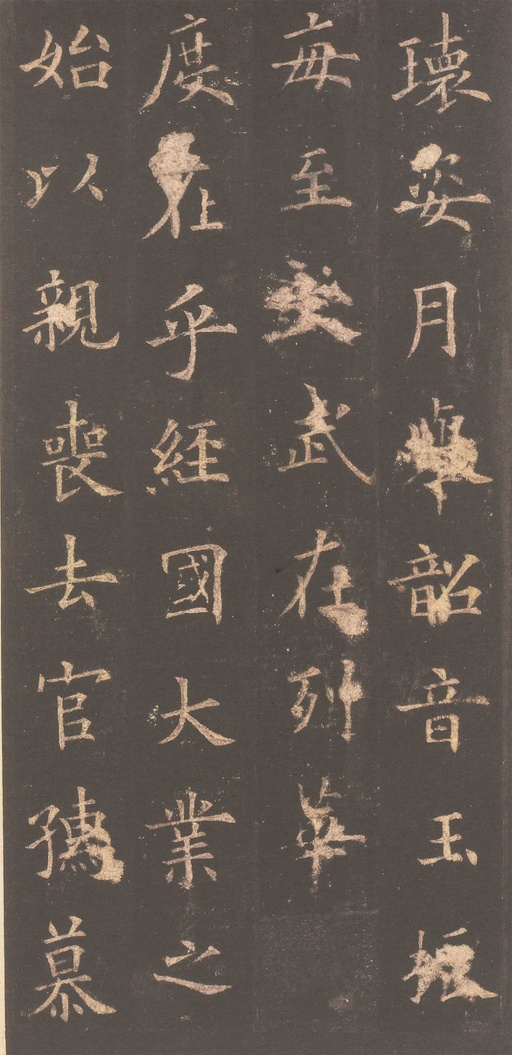 瓌姿月韶音玉振
每至武在列華
度在乎經國大業之
始以親喪去官孺慕